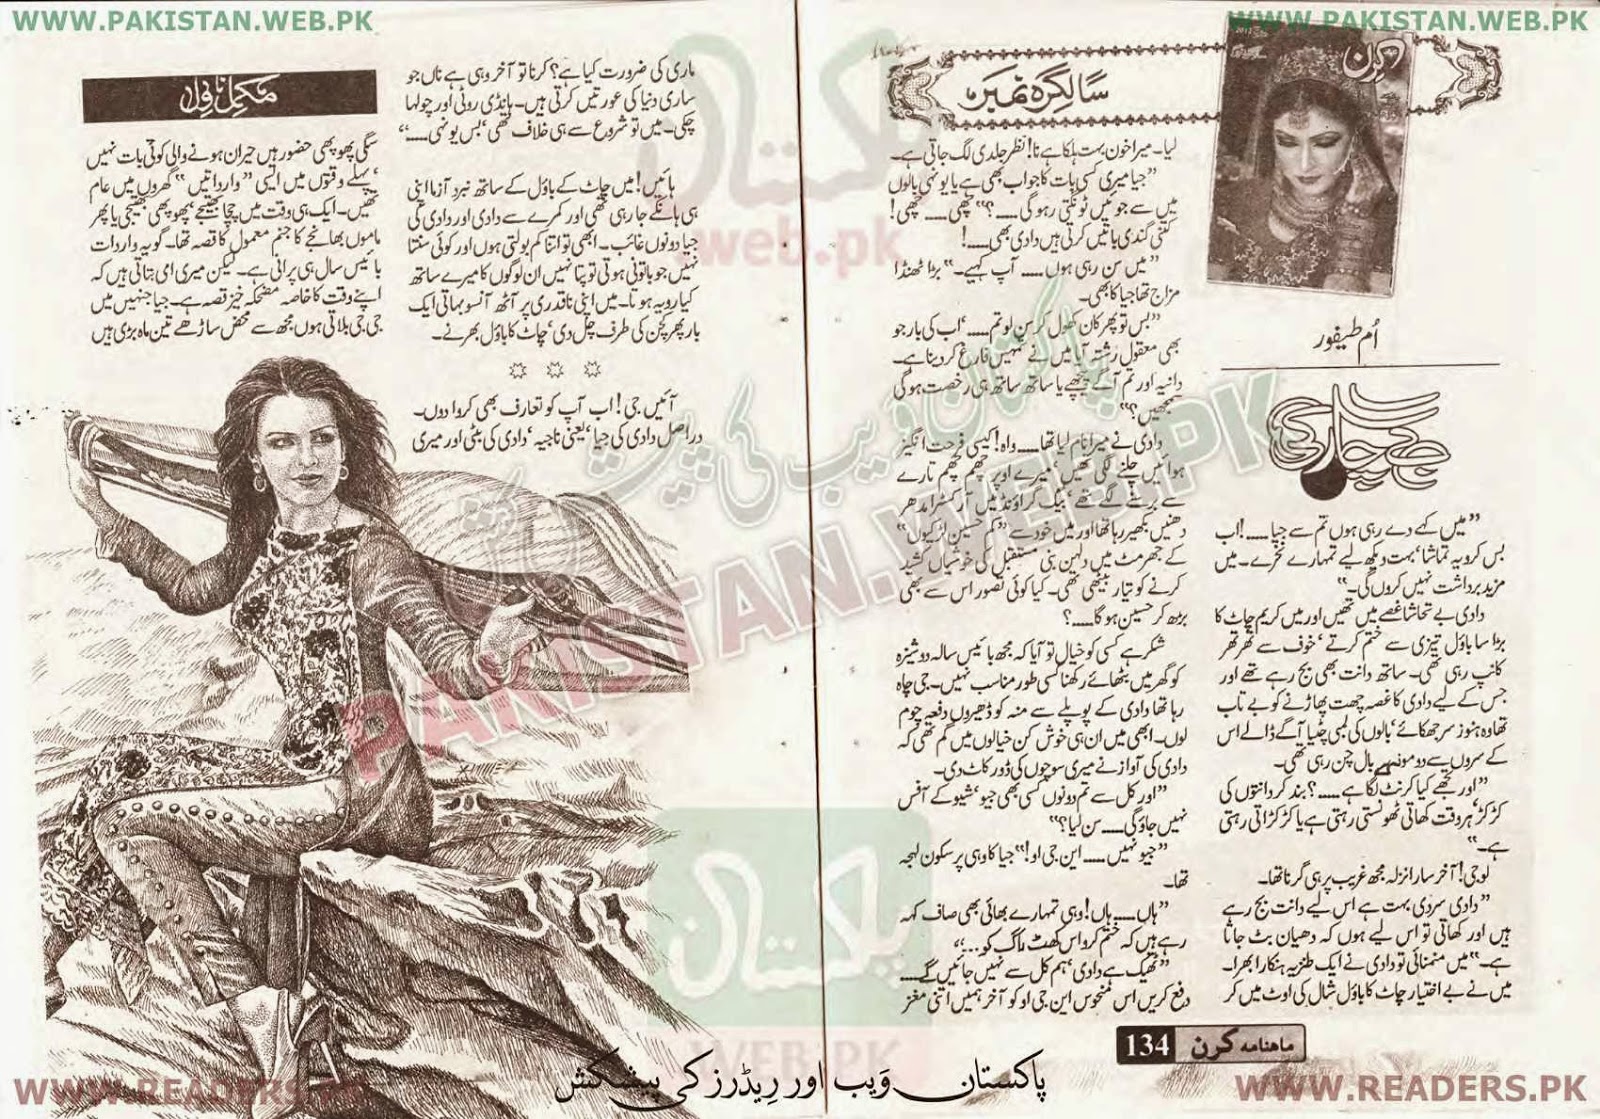 WWW.PAKISTAN.WEB.PK
WWW.PAKISTAN.WEB.PK
سالگرہ نمبر
کرن
اُم طیفور
”میں کہے دے رہی ہوں تم سے جیا......! اب
بس کرو یہ تماشا‘ بہت دیکھ لیے تمہارے نخرے۔ میں
مزید برداشت نہیں کروں گی۔“
دادی بے تحاشا غصے میں تھیں اور میں کریم چاٹ کا
بڑا سا باؤل تیزی سے ختم کرتے‘ خوف سے تھر تھر
کانپ رہی تھی۔ ساتھ دانت بھی بج رہے تھے اور
جس کے لیے دادی کا غصہ چھت پھاڑنے کو بے تاب
تھا وہ ہنوز سر جھکائے‘ بالوں کی لمبی چٹیا آگے ڈالے اس
کے سروں سے دو مونہے بال چن رہی تھی۔
”اور تجھے کیا کرنٹ لگا ہے......؟ بند کر دانتوں کی
کڑ کڑ‘ ہر وقت کھاتی ٹھونستی رہتی ہے یا کڑکڑاتی رہتی
ہے۔“
لو جی! آخر سارا نزلہ مجھ غریب پر ہی گرنا تھا۔
”دادی سردی بہت ہے اس لیے دانت بج رہے
ہیں اور کھاتی تو اس لیے ہوں کہ دھیان بٹ جاتا
ہے۔“ میں منمنائی تو دادی نے ایک طنزیہ ہنکارا بھرا۔
میں نے بے اختیار چاٹ کا باؤل شال کی اوٹ میں کر
لیا۔ میرا خون بہت ہلکا ہے نا! نظر جلدی لگ جاتی ہے۔
”جیا میری کسی بات کا جواب بھی ہے یا یونہی بالوں
میں سے جوئیں ٹونگتی رہو گی......؟“ چھی...... چھی!
کتنی گندی باتیں کرتی ہیں دادی بھی......!
”میں سن رہی ہوں...... آپ کہیے۔“ بڑا ٹھنڈا
مزاج تھا جیا کا بھی۔
”بس تو پھر کان کھول کر سن لو تم......‘ اب کی بار جو
بھی معقول رشتہ آیا میں نے تمہیں فارغ کر دینا ہے۔
دانیہ اور تم آگے پیچھے یا ساتھ ساتھ ہی رخصت ہو گی
سمجھیں؟“
دادی نے میرا نام لیا تھا...... واہ! کیسی فرحت انگیز
ہوائیں چلنے لگی تھیں‘ میرے اوپر چھم چھم تارے
سے برسنے لگے تھے‘ بیک گراؤنڈ میں آرکسٹرا مدھر
دھنیں بکھیر رہا تھا اور میں خود سے ”کم حسین لڑکیوں“
کے جھرمٹ میں دلہن بنی مستقبل کی خوشیاں کشید
کرنے کو تیار بیٹھی تھی۔ کیا کوئی تصور اس سے بھی
بڑھ کر حسین ہو گا......؟
شکر ہے کسی کو خیال تو آیا کہ مجھ بائیس سالہ دوشیزہ
کو گھر میں بٹھائے رکھنا کسی طور مناسب نہیں۔ جی چاہ
رہا تھا دادی کے پوپلے سے منہ کو ڈھیروں دفعہ چوم
لوں۔ ابھی میں ان ہی خوش کن خیالوں میں گم تھی کہ
دادی کی آواز نے میری سوچوں کی ڈور کاٹ دی۔
”اور کل سے تم دونوں کسی بھی جیو‘ شیو کے آفس
نہیں جاؤ گی...... سن لیا؟“
”جیو نہیں...... این جی او!“ جیا کا وہی پر سکون لہجہ
تھا۔
”ہاں...... ہاں! وہی تمہارے بھائی بھی صاف کہہ
رہے ہیں کہ ختم کرو اس کھٹ راگ کو...“
”ٹھیک ہے دادی‘ ہم کل سے نہیں جائیں گے......
دفع کریں اس منحوس این جی او کو آخر ہمیں اتنی مغز
ماہنامہ کرن 134
ماری کی ضرورت کیا ہے؟ کرنا تو آخر وہی ہے ناں جو
ساری دنیا کی عورتیں کرتی ہیں۔ ہانڈی روٹی اور چولہا
چکی۔ میں تو شروع سے ہی خلاف تھی‘ بس یونہی......“
ہائیں! میں چاٹ کے باؤل کے ساتھ نبرد آزما اپنی
ہی ہانکے جا رہی تھی اور کمرے سے دادی اور دادی کی
جیا دونوں غائب۔ ابھی تو اتنا کم بولتی ہوں اور کوئی سنتا
نہیں جو باتونی ہوتی تو پتا نہیں ان لوگوں کا میرے ساتھ
کیا رویہ ہوتا۔ میں اپنی ناقدری پر آٹھ آنسو بہاتی ایک
بار پھر کچن کی طرف چل دی‘ چاٹ کا باؤل بھرنے۔
☼ ☼ ☼
آئیں جی! اب آپ کو تعارف بھی کروا دوں۔
دراصل دادی کی جیا‘ یعنی ناجیہ‘ دادی کی بیٹی اور میری
مکمل ناول
سگی پھوپھی حضور ہیں حیران ہونے والی کوئی بات نہیں
‘پہلے وقتوں میں ایسی ”وارداتیں“ گھروں میں عام
تھیں۔ ایک ہی وقت میں چچا بھتیجے‘ پھوپھی بھتیجی یا پھر
ماموں بھانجے کا جنم معمول کا قصہ تھا۔ گو یہ واردات
بائیس سال ہی پرانی ہے۔ لیکن میری امی بتاتی ہیں کہ
اپنے وقت کا خاصہ مضحکہ خیز قصہ ہے۔ جیا جنہیں میں
جی جی بلاتی ہوں مجھ سے محض ساڑھے تین ماہ بڑی ہیں
پاکستان ویب کی پیشکش
PAKISTAN.WEB.PK
پاکستان
.web.pk
پاکستان
WEB.PK
پاکستان ویب اور ریڈرز کی پیشکش
WWW.READERS.PK
WWW.READERS.PK